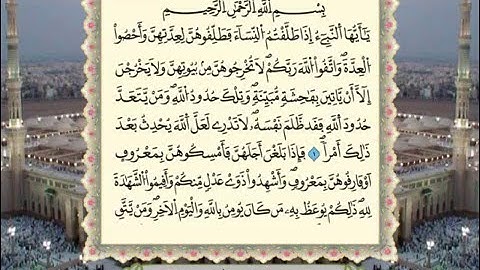 بِسْمِ اللَّهِ الرَّحْمَٰنِ الرَّحِيمِ
يَٰٓأَيُّهَا اَلنَّبِےٓءُ اِذَا طَلَّقْتُمُ اُلنِّسَآءَ فَطَلِّقُوهُنَّ لِعِدَّتِهِنَّ وَأَحْصُواْ
اُلْعِدَّةَۖ وَاتَّقُواْ اُللَّهَ رَبَّكُمْۖ لَا تُخْرِجُوهُنَّ مِنۢ بُيُوتِهِنَّ وَلَا يَخْرُجْنَ
إِلَّآ أَنْ يَّاتِينَ بِفَٰحِشَةٖ مُّبَيِّنَةٖۖ وَتِلْكَ حُدُودُ اُللَّهِۖ وَمَنْ يَّتَعَدَّ
حُدُودَ اَللَّهِ فَقَد ظَّلَمَ نَفْسَهُۥۖ لَا تَدْرِے لَعَلَّ اَللَّهَ يُحْدِثُ بَعْدَ
ذَٰلِكَ أَمْراٗۖ ١ فَإِذَا بَلَغْنَ أَجَلَهُنَّ فَأَمْسِكُوهُنَّ بِمَعْرُوفٍ
اَوْ فَارِقُوهُنَّ بِمَعْرُوفٖۖ وَأَشْهِدُواْ ذَوَےْ عَدْلٖ مِّنكُمْۖ وَأَقِيمُواْ اُلشَّهَٰدَةَ
لِلهِۖ ذَٰلِكُمْ يُوعَظُ بِهِۦ مَن كَانَ يُومِنُ بِاللَّهِ وَالْيَوْمِ اِلَاخِرِۖ وَمَنْ يَّتَّقِ